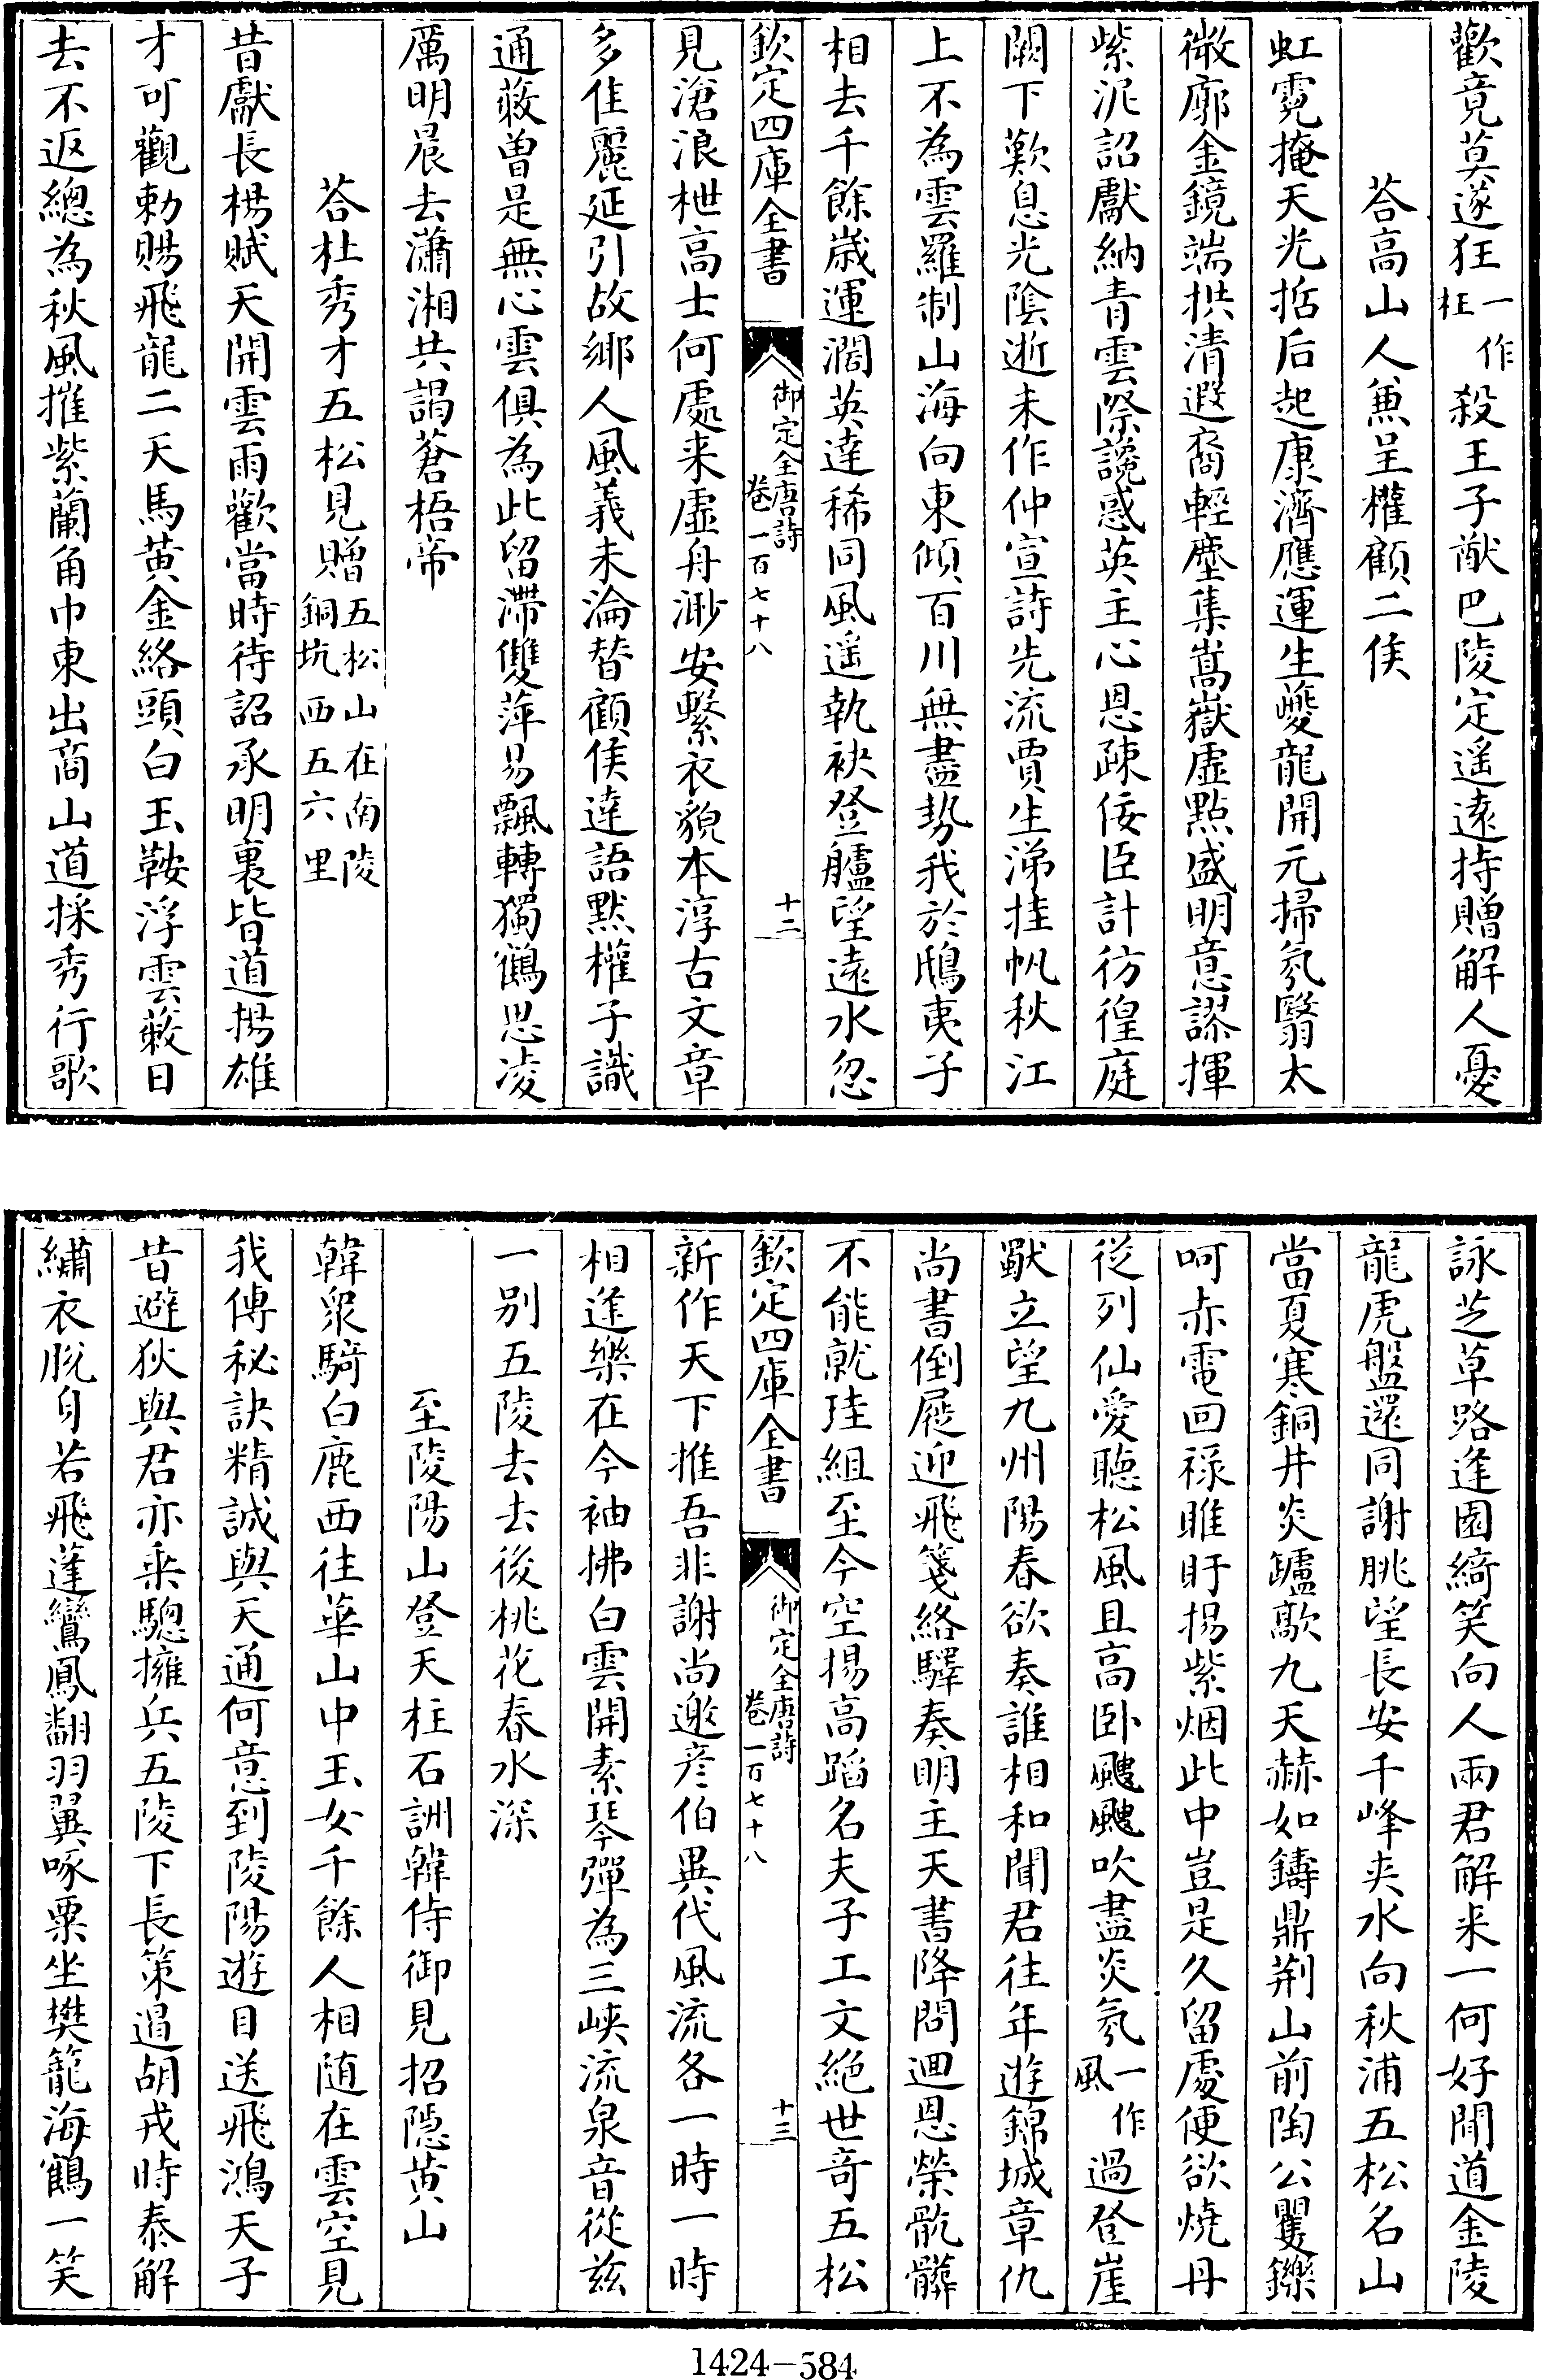 歡竟莫遂狂一作枉殺王子猷巴陵定遥遠持贈解人憂
荅高山人兼呈權顧二侯
虹霓掩天光㧞后起康濟應運生夔龍開元掃氛翳太
微廓金鏡端拱清遐裔輕塵集嵩嶽虛點盛明意謬揮
紫泥詔獻納青雲際讒惑英主心恩疎佞臣計彷徨庭
闕下歎息光陰逝未作仲宣詩先流賈生涕挂帆秋江
上不為雲羅制山海向東傾百川無盡勢我於鴟夷子
相去千餘歳運濶英逹稀同風遥執袂登艫望遠水忽
欽定四庫全書 御定全唐詩 卷一百七十八 十二
見滄浪枻高士何處来虛舟渺安繫衣貌本淳古文章
多佳麗延引故鄉人風義未淪替顧侯逹語默權子識
通蔽曽是無心雲俱為此留滯雙萍易飄轉獨鶴思凌
厲明晨去瀟湘共謁蒼梧帝
荅杜秀才五松見贈五松山在南陵銅坑西五六里
昔獻長楊賦天開雲雨歡當時待詔承明裏皆道揚雄
才可觀勅賜飛龍二天馬黄金絡頭白玉鞍浮雲蔽日
去不返總為秋風摧紫蘭角巾東出商山道採秀行歌
詠芝草路逢園綺笑向人兩君解来一何好聞道金陵
龍虎盤還同謝朓望長安千峰夾水向秋浦五松名山
當夏寒銅井炎鑪歊九天赫如鑄鼎荆山前陶公矍鑠
呵赤電回祿睢盱揚紫烟此中豈是久留處便欲燒丹
從列仙愛聴松風且高卧颼颼吹盡炎氛一作風過登崖
獻立望九州陽春欲奏誰相和聞君往年遊錦城章仇
尚書倒屣迎飛箋絡驛奏明主天書降問迴恩榮骯髒
不能就珪組至今空揚高蹈名夫子工文絶世奇五松
欽定四庫全書 御定全唐詩 卷一百七十八 十三
新作天下推吾非謝尚邀彦伯異代風流各一時一時
相逢樂在今袖拂白雲開素琴彈為三峽流泉音從兹
一别五陵去去後桃花春水深
至陵陽山登天柱石詶韓侍御見招隠黄山
韓衆騎白鹿西往華山中玉女千餘人相随在雲空見
我傳秘訣精誠與天通何意到陵陽遊目送飛鴻天子
昔避狄與君亦乗驄擁兵五陵下長策遏胡戎時泰解
繡衣脱身若飛蓬鸞鳳翻羽翼啄粟坐樊籠海鶴一笑
1424—584